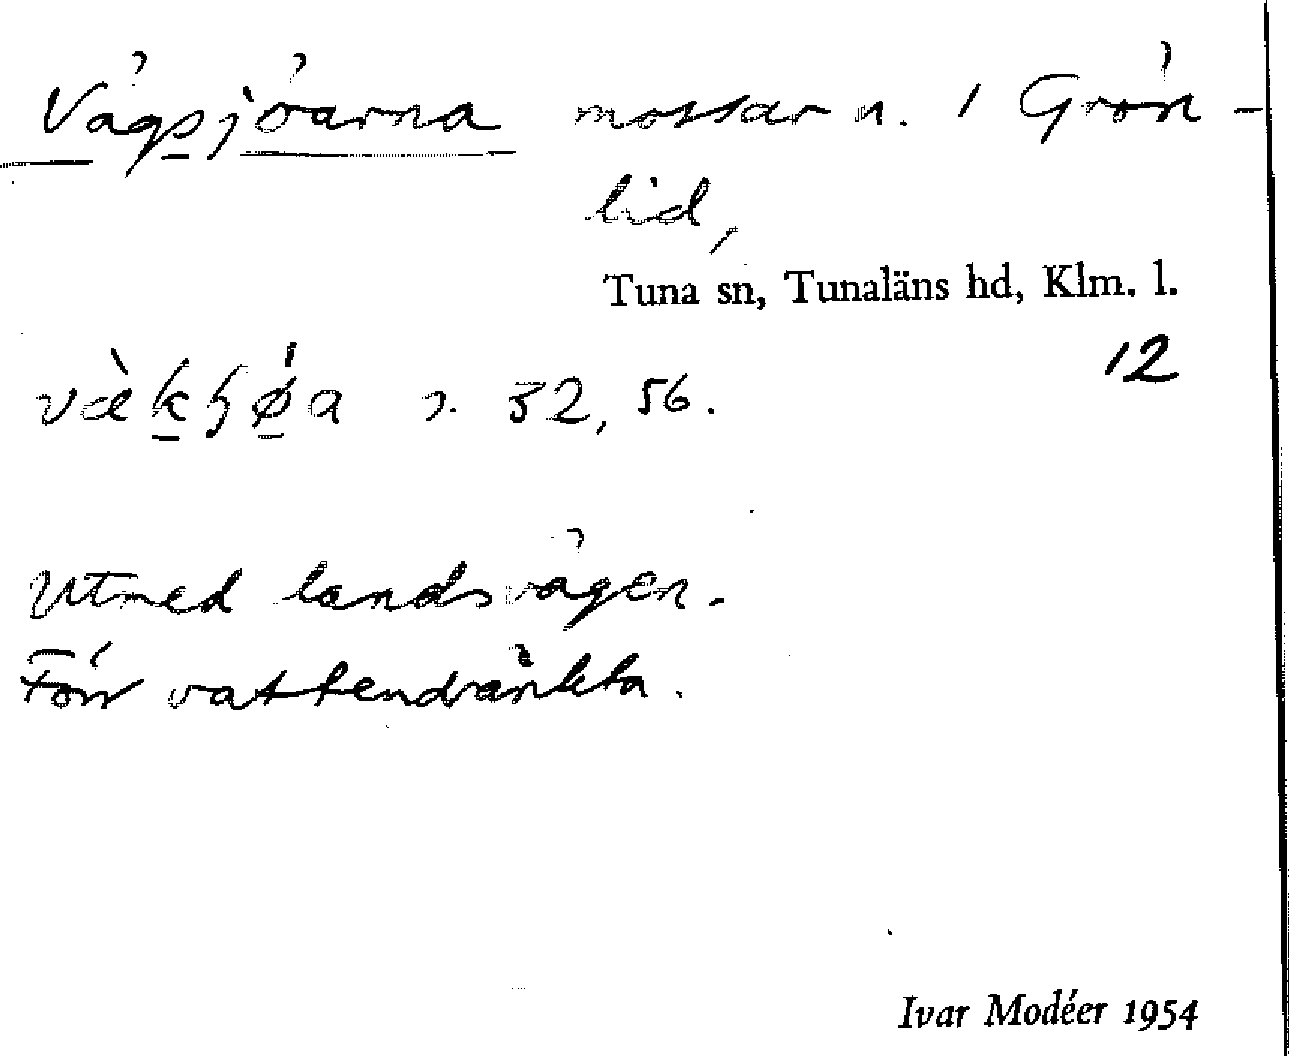 Vägsjöarna mossar n. 1 Grön-
lid,
Tuna sn, Tunaläns hd, Klm. l.
12
32, 56.
Utmed landsvägen.
Förr vattendränkta.
Ivar Modéer 1954